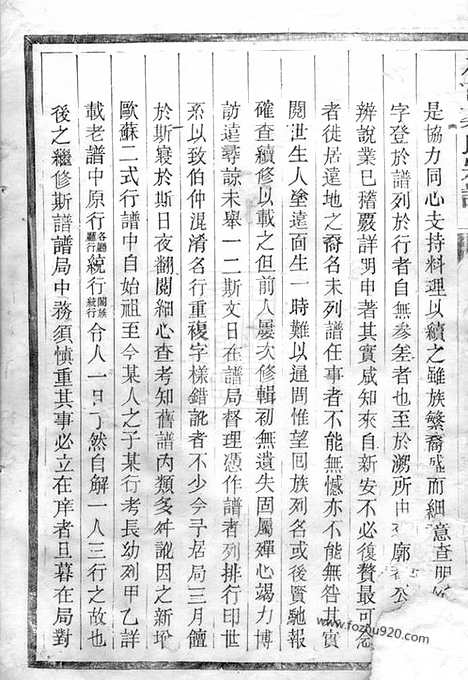 是協力同心支持料理以續之雖族繁裔盛而細意查
字登於譜列於行者自無參差者也至於溯所由廓公
辨說業已稽覈詳明申著其實咸知來自新安不必復贅最可
者徙居遠地之裔名未列譜任事者不能無憾亦不能無咎其實
閱世生人塗遠面生一時難以通問惟望回族列名或後賢馳報
確查續修以載之但前人屢次修輯初無遺失固屬殫心竭力博
訪遠尋諒未舉一二斯文日在譜局督理憑作譜者列排行印世
系以致伯仲混淆名行重複字樣錯訛者不少今予居局三月饘
於斯寢於斯日夜翻閱細心查考知舊譜內類多舛訛因之新增
歐蘇二式行譜中自始祖至今某人之子某行考長幼列甲乙詳
載老譜中原行各廳廳行統行闔族統行令人一目了然自解一人三行之故也
後之繼修斯譜譜局中務須慎重其事必立在庠者旦暮在局對
www.fozhu920.com